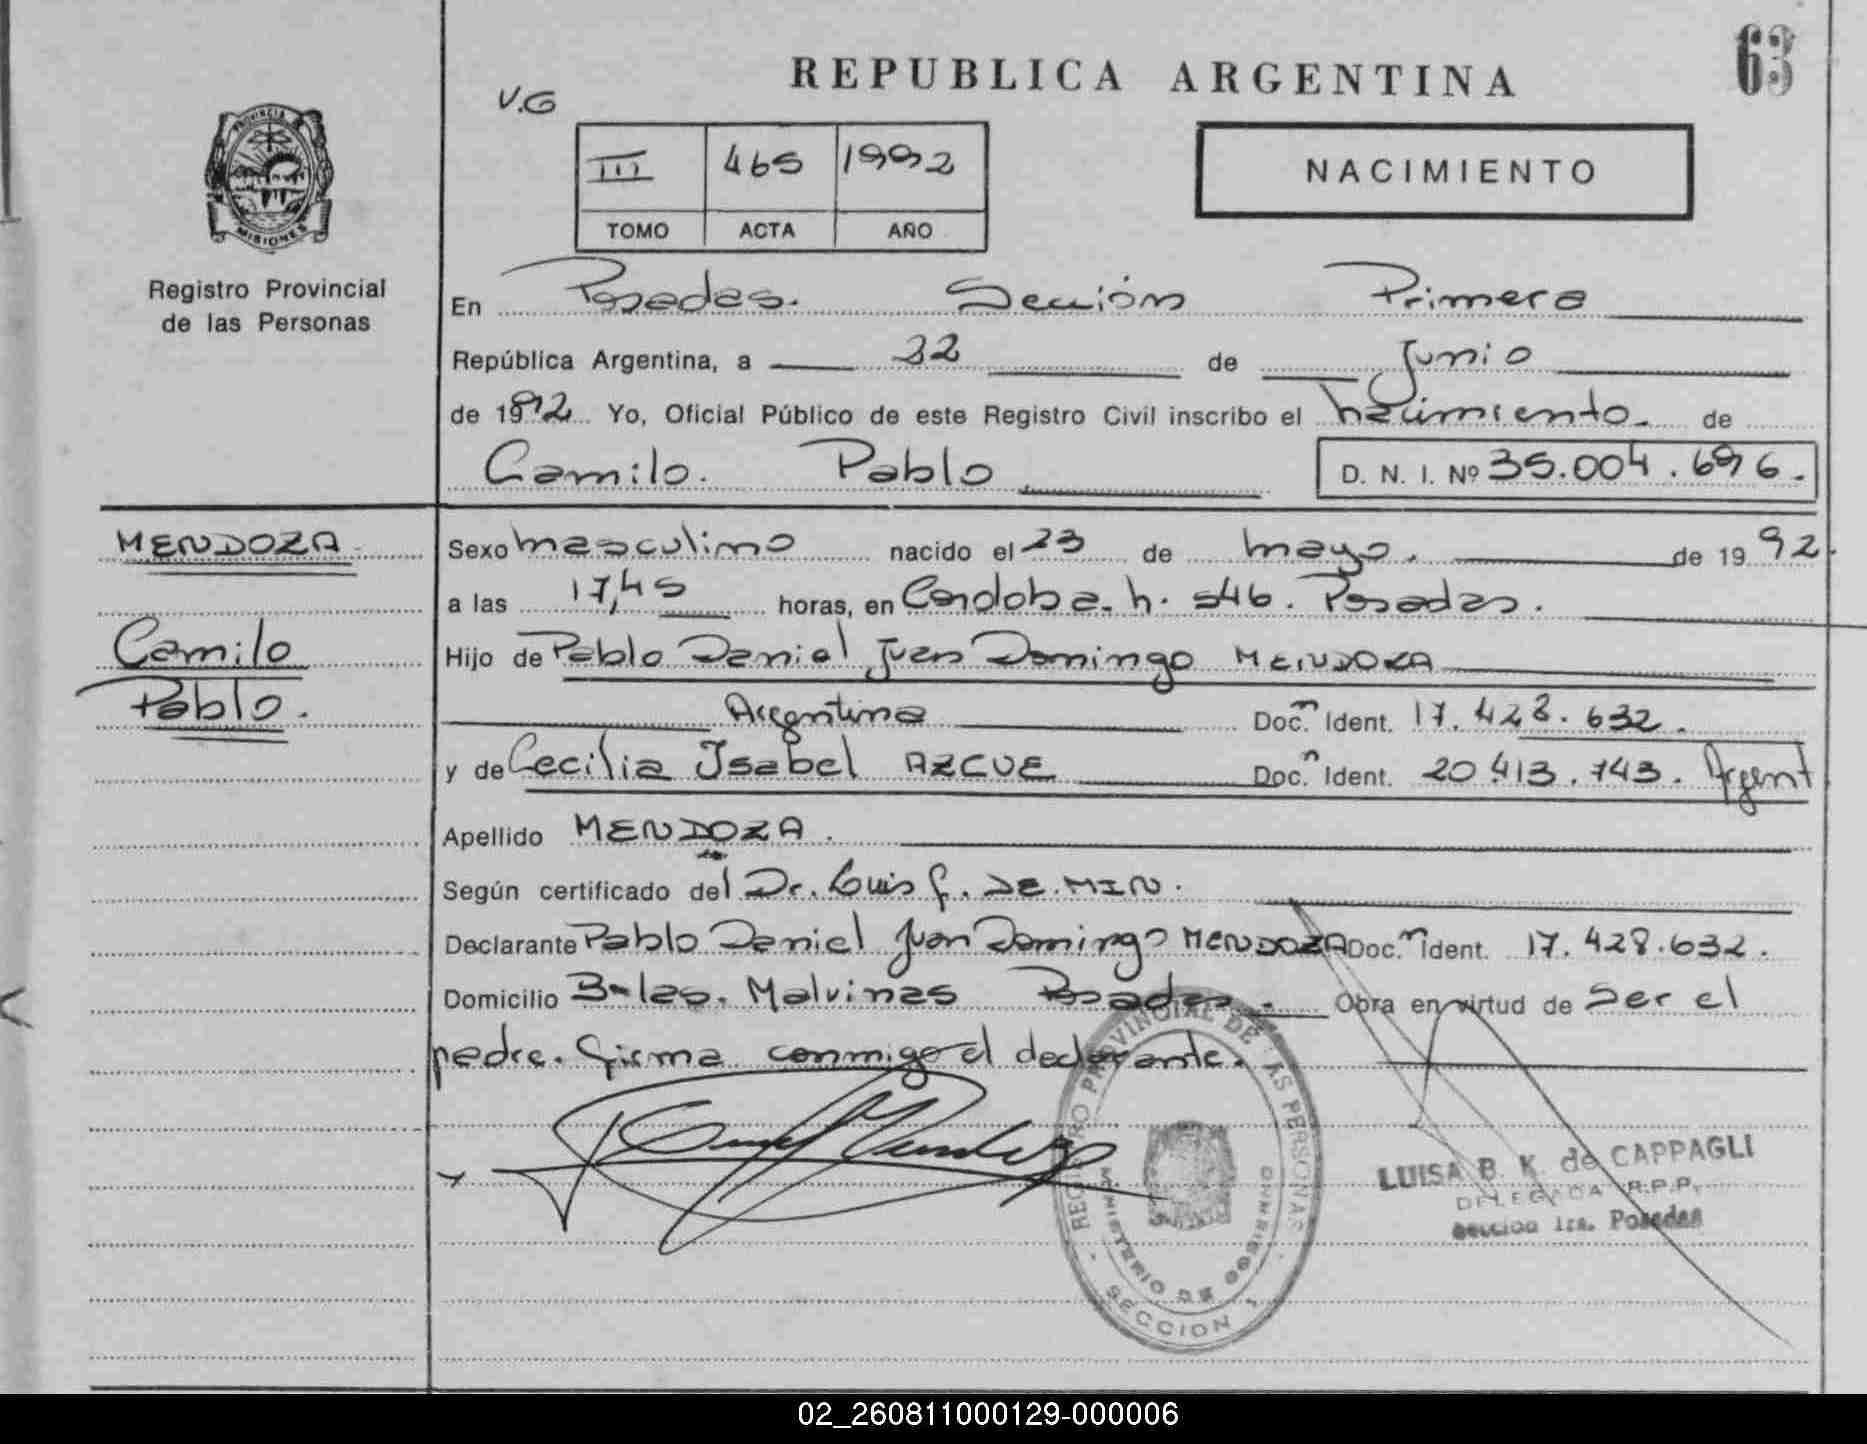 63
REPUBLICA ARGENTINA
V.G
III 465 1992
TOMO ACTA AÑO
NACIMIENTO
PROVINCIA DE
MISIONES
Registro Provincial
de las Personas
En Posadas. Sección Primera
República Argentina, a 22 de Junio
de 1992 Yo, Oficial Público de este Registro Civil inscribo el nacimiento. de
Camilo. Pablo D. N. I. Nº 35.004.696.
MENDOZA
Camilo
Pablo.
Sexo masculino nacido el 23 de mayo. de 1992.
a las 17,45 horas, en Cordoba. n. 546. Posadas.
Hijo de Pablo Daniel Juan Domingo MENDOZA
Argentina Doc.n Ident. 17.428.632.
y de Cecilia Isabel AZCUE Doc.n Ident. 20.413.743. Argent
Apellido MENDOZA.
Según certificado del Dr. Luis G. DE.MIN.
Declarante Pablo Daniel Juan Domingo MENDOZA Doc.n Ident. 17.428.632.
Domicilio B- Las. Malvinas Posadas. Obra en virtud de Ser el
padre. Firma conmigo el declarante.
REGISTRO PROVINCIAL DE LAS PERSONAS
MINISTERIO DE GOBIERNO
SECCION 1
LUISA B. K. de CAPPAGLI
DELEGADA R.P.P.
Seccion 1ra. Posadas
02_260811000129-000006